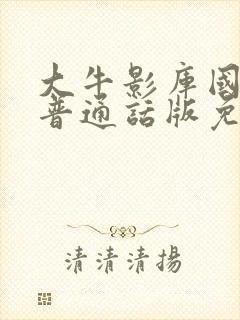 大牛影庫國
普通話版免
清清清揚